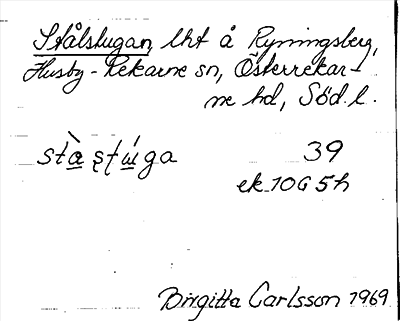 Stålstugan, lht å Ryningsberg,
Husby-Rekarne sn, Österrekar-
ne hd, Söd. l.
stàʂʈúga 39
ek. 10G5h
Birgitta Carlsson 1969